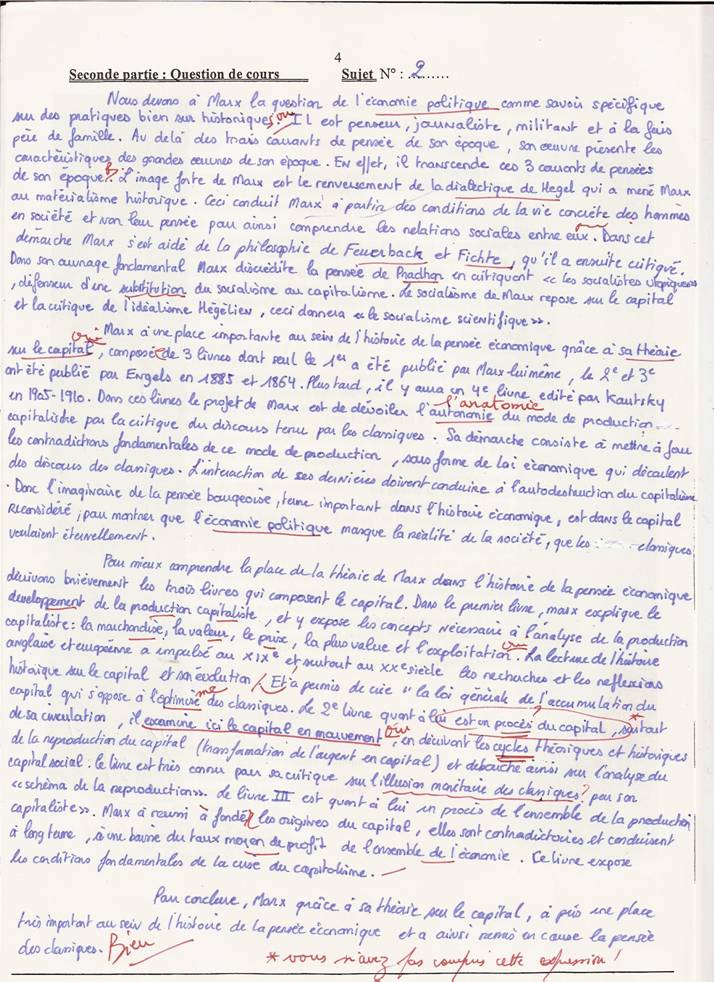 4
Seconde partie : Question de cours Sujet N° : 2
Nous devons à Marx la question de l'économie politique comme savoir spécifique
sur des pratiques bien sur historiques. oui Il est penseur, journaliste, militant et à la fois
père de famille. Au delà des trais courants de pensée de son époque, son œuvre présente les
caractéristiques des grandes œuvres de son époque. En effet, il transcende ces 3 courants de pensées
de son époque. L'image forte de Marx est le renversement de la dialectique de Hegel qui a mené Marx
au matérialisme historique. Ceci conduit Marx à partir des conditions de la vie concrète des hommes
en société et non leur pensée pour ainsi comprendre les relations sociales entre eux. Dans cet
démarche Marx s'est aidé de la philosophie de Feuerback et Fichte, qu'il a ensuite critiqué.
Dans son ouvrage fondamental Marx discrédite la pensée de Pradhon en critiquant « les socialistes utopiques»
, défenseur d'une substitution du socialisme au capitalisme. Le socialisme de Marx repose sur le capital
et la critique de l'idéalisme Hégélien, ceci donnera « le socialisme scientifique».
oui
Marx à une place importante au sein de l'histoire de la pensée économique grâce à sa théorie
sur le capital, composée de 3 livres dont seul le 1er a été publié par Marx luimême, le 2e et 3e
ont été publié par Engels en 1885 et 1864. Plus tard, il y aura un 4e livre édité par Kautsky
l'anatomie
en 1905-1910. Dans ces livres le projet de Marx est de dévoiler l'autonomie du mode de production
capitaliste par la critique du discours tenu par les classiques. Sa démarche consiste à mettre à jour
les contradictions fondamentales de ce mode de production, sous forme de loi économique qui découlent
des discours des classiques. L'interaction de ses dernières doivent conduire à l'autodestruction du capitalisme
. Donc l'imaginaire de la pensée bourgeoise, terme important dans l'histoire économique, est dans le capital
reconsidéré, pour montrer que l'économie politique masque la réalité de la société, que les classiques
voulaient éternellement.
Pour mieux comprendre la place de la théorie de Marx dans l'histoire de la pensée économique
décrivons brièvement les trois livres qui composent le capital. Dans le premier livre, marx explique le
développement de la production capitaliste, et y expose les concepts nécessaire à l'analyse de la production
capitaliste : la marchandise, la valeur, le prix, la plus value et l'exploitation. oui La lecture de l'histoire
anglaise et européenne a impulsé au XIXe et surtout au XXe siècle les recherches et les reflexions
historique sur le capital et son évolution. Et a permis de crée "la loi générale de l'accumulation du
capital qui s'oppose à l'optimisme des classiques. Le 2e livre quant à lui est un procès du capital, surtout *
de sa circulation, il examine ici le capital en mouvement oui, en décrivant les cycles théoriques et historiques
de la reproduction du capital (transformation de l'argent en capital) et debouche ainsi sur l'analyse du
capital social. Le livre est très connu pour sa critique sur l'illusion monétaire des classiques? par son
«schéma de la reproduction». Le livre III est quant à lui un procès de l'ensemble de la production
capitaliste». Marx a réussi à fonder les origines du capital, elles sont contradictoires et conduisent
à long terme, à une baisse du taux moyen de profit de l'ensemble de l'économie. Ce livre expose
les conditions fondamentales de la crise du capitalisme.
Pour conclure, Marx grâce à sa théorie sur le capital, à pris une place
très important au sein de l'histoire de la pensée économique et a ainsi remis en cause la pensée
des classiques. Bien
* vous n'avez pas compris cette expression !